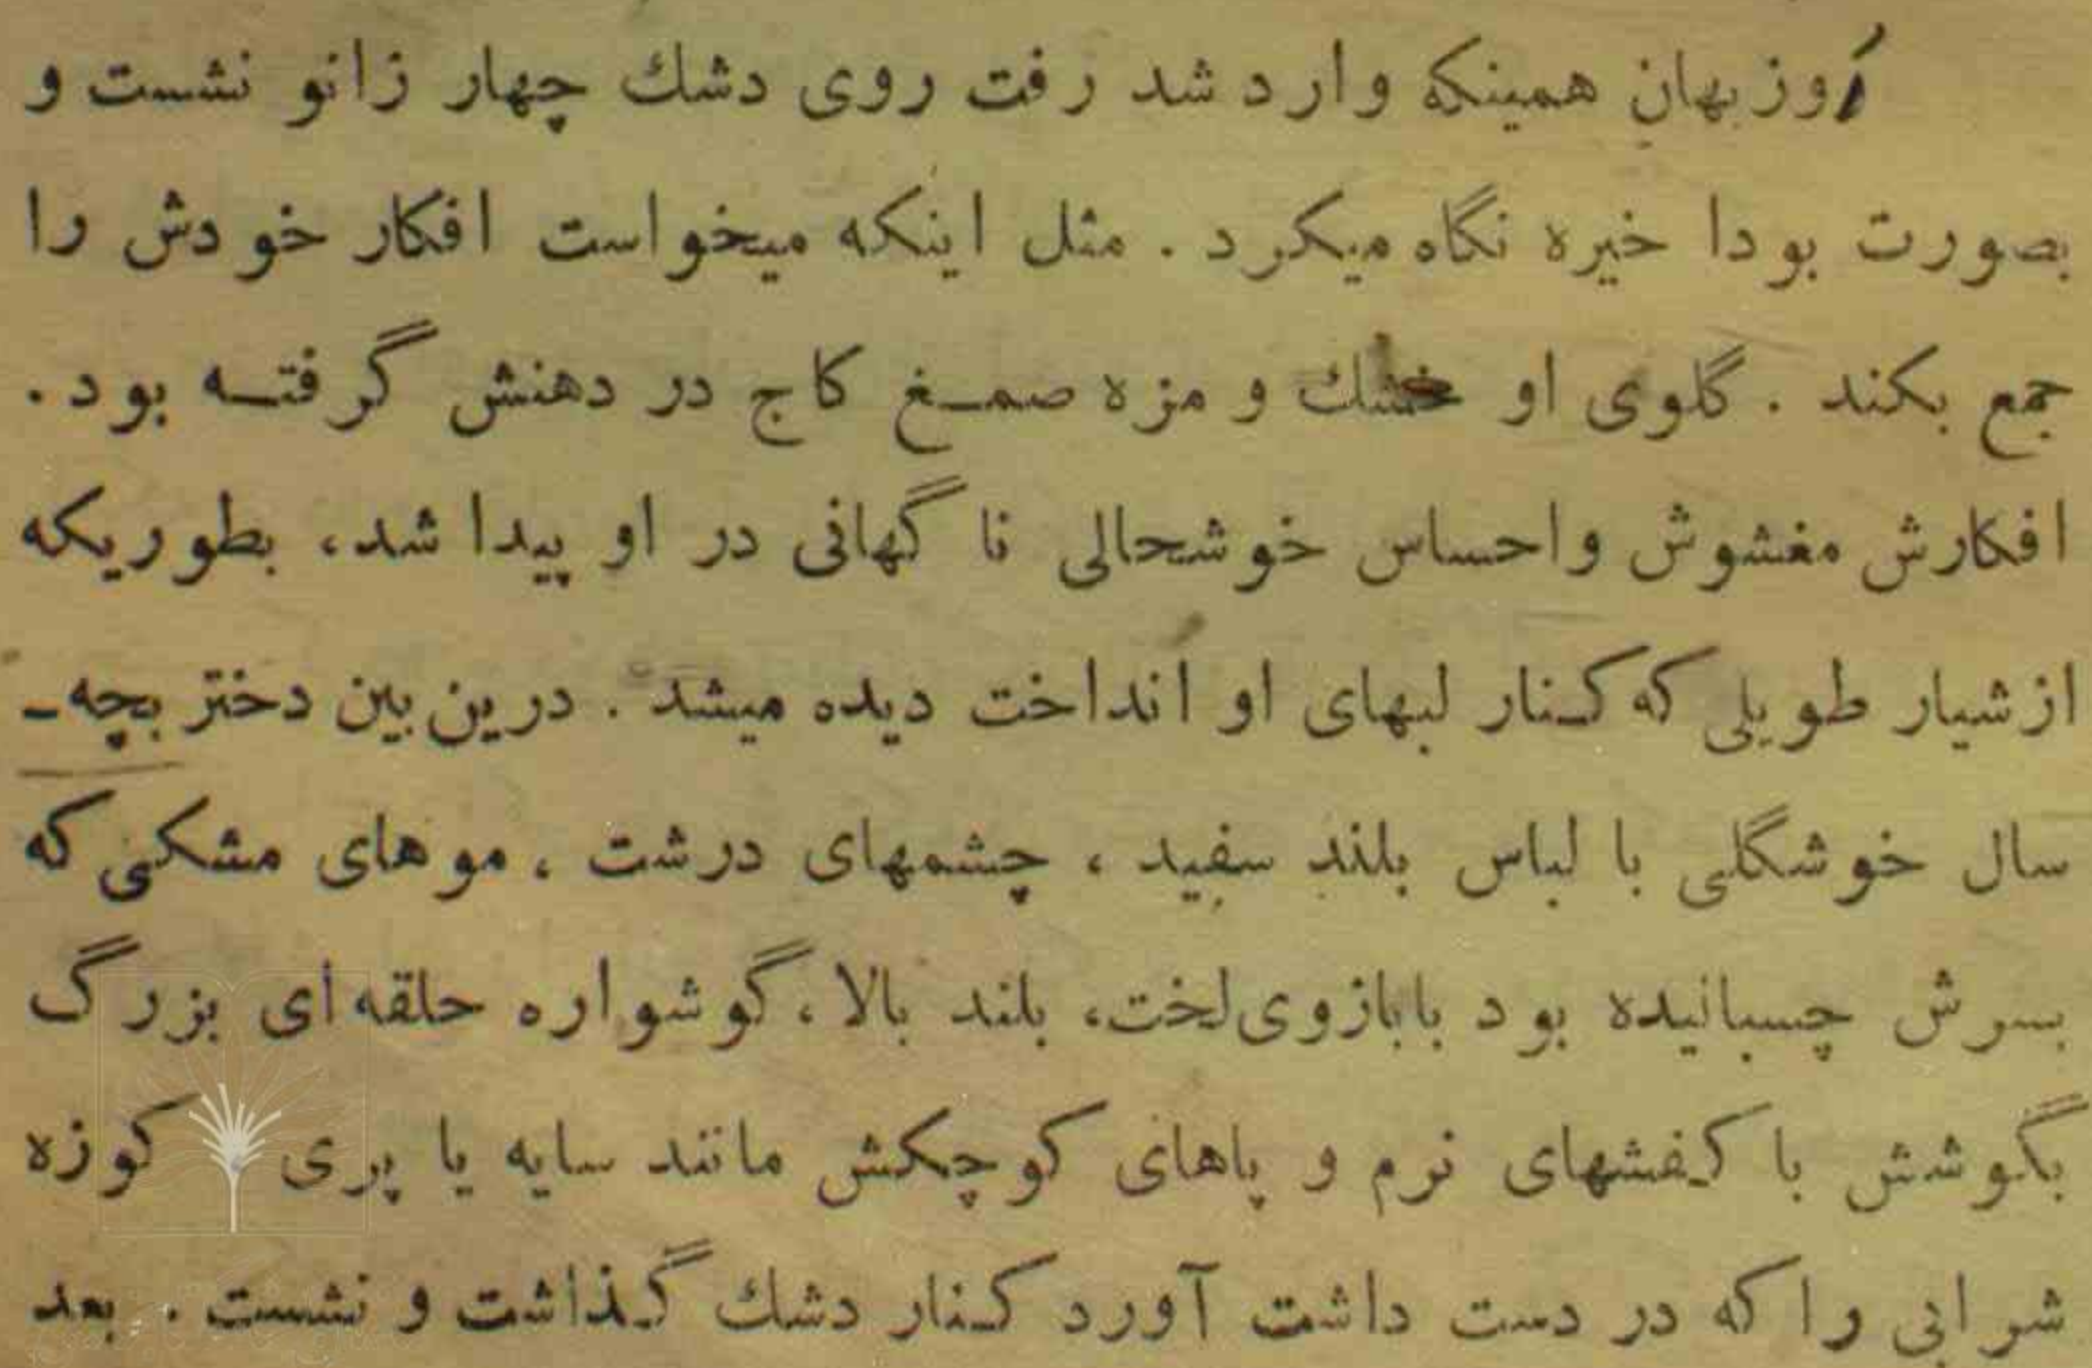 روزبهان همینکه وارد شد رفت روی دشك چهار زانو نشست و
بصورت بودا خیره نگاه میکرد . مثل اینکه میخواست افکار خودش را
جمع بکند . گلوی او خشك و مزه صمغ کاج در دهنش گرفته بود.
افکارش مغشوش و احساس خوشحالی ناگهانی در او پیدا شد، بطوریکه
از شیار طویلی که کنار لبهای او انداخت دیده میشد . درین بین دختر بچه-
سال خوشگلی با لباس بلند سفید ، چشمهای درشت ، موهای مشکی که
بسرش چسبانیده بود با بازوی لخت، بلند بالا، گوشواره حلقه‌ای بزرگ
بگوشش با کفشهای نرم و پاهای کوچکش مانند سایه یا پری کوزه
شرابی را که در دست داشت آورد کنار دشك گذاشت و نشست . بعد